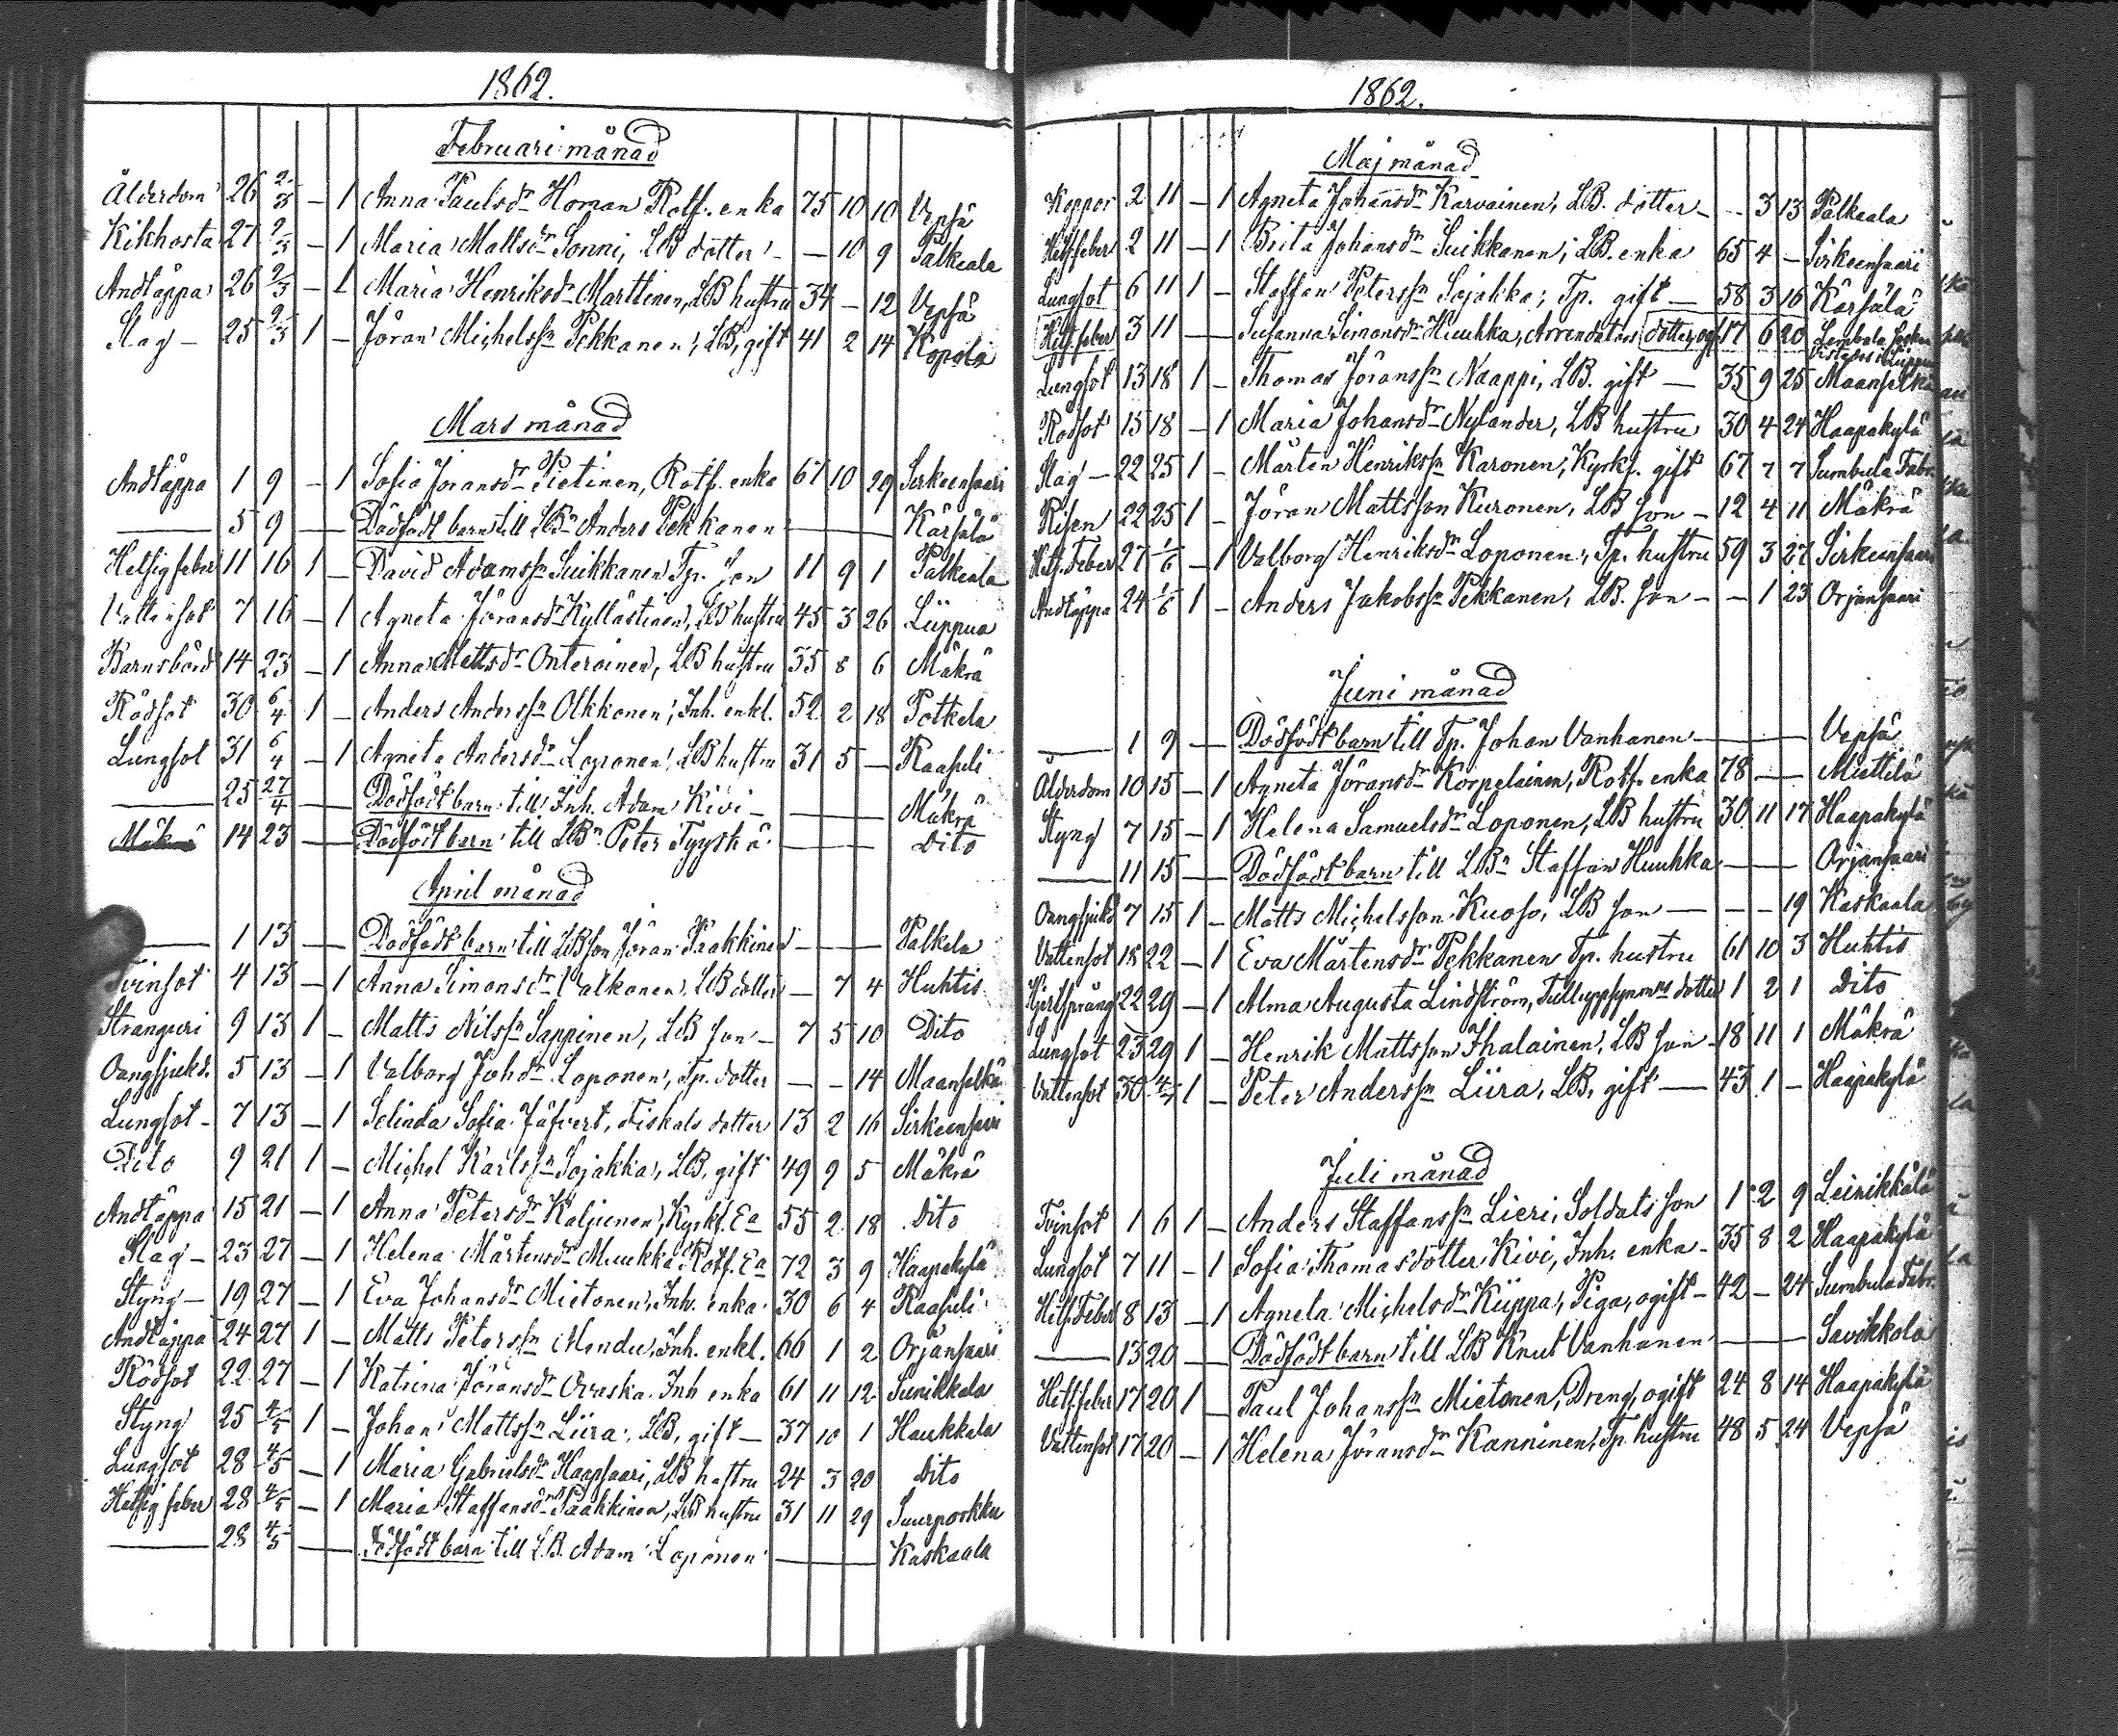 1862.
Februari månad
Ålderdom 26 2/3 – 1 Anna Paulsdr Homan Rotf. enka 75 10 10 Vepsä
Kikhosta 27 2/3 – 1 Maria Mattsdr Sonni, LB dotter – – 10 9 Palkeala
Andtäppa 26 2/3 – 1 Maria Henriksdr Marttinen, LB hustru 34 – 12 Vepsä
Slag – 25 2/3 1 – Jöran Michelssn Pekkanen, LB, gift 41 2 14 Kopola
Mars månad
Andtäppa 1 9 – 1 Sofia Jöransdr Pietinen, Rotf. enka 67 10 29 Sirkeensaari
— 5 9 — Dödfödt barn till LBn Anders Pekkanen — Kärsälä
Hetsig feber 11 16 1 – David Adamssn Suikkanen Tp. son 11 9 1 Palkeala
Vattensot 7 16 – 1 Agneta Jöransdr Kyllästinen, LB hustru 45 3 26 Lüppua
Barnsbörd 14 23 – 1 Anna Mattsdr Onteroinen, LB hustru 35 8 6 Mäkrä
Rödsot 30 6/4 1 – Anders Anderssn Olkkonen, Inh. enkl. 52 2 18 Potkela
Lungsot 31 6/4 – 1 Agneta Andersdr Loponen, LB hustru 31 5 – Raasuli
— 25 27/4 — Dödfödt barn till Inh. Adam Kivi – — Mäkrä
14 23 — Dödfödt barn till LBn Peter Tyyskä — Dito
April månad
— 1 13 — Dödfödt barn till LB son Jöran Paakkinen — Palkela
Tvinsot 4 13 – 1 Anna Simonsdr Valkonen, LB dotter – 7 4 Huhtis
Stranguri 9 13 1 – Matts Nilssn Sappinen, LB son – 7 5 10 Dito
Oangsjukd. 5 13 – 1 Valborg Johdr Loponen, Tp. dotter – – 14 Maanselkä
Lungsot – 7 13 – 1 Selinda Sofia Jäfvert, Fiskals dotter 13 2 16 Sirkeensaari
Dito 9 21 1 – Michel Karlssn Sojakka, LB, gift 49 9 5 Mäkrä
Andtäppa 15 21 – 1 Anna Petersdr Kaljunen, Kyrkf. Ea 55 2 18 Dito
Slag – 23 27 – 1 Helena Mårtensdr Muukka Rotf. Ea 72 3 9 Haapakylä
Styng – 19 27 – 1 Eva Johansdr Mietonen, Inh. enka 30 6 4 Raasuli
Andtäppa 24 27 1 – Matts Peterssn Mondu, Inh. enkl. 66 1 2 Orjansaari
Rödsot 22 27 – 1 Katrina Jöransdr Ovaska Inh enka 61 11 12 Suvikkala
Styng 25 4/5 1 – Johan Mattssn Liira, LB, gift – 37 10 1 Haukkala
Lungsot 28 4/5 – 1 Maria Gabrielsdr Haapsaari, LB hustru 24 3 20 Dito
Hetsig feber 28 4/5 – 1 Maria Staffansdr Paakkinen, LB hustru 31 11 29 Suurporkku
— 28 4/5 — Dödfödt barn till LB. Adam Loponen — Kaskaala
1862.
Maj månad
Koppor 2 11 – 1 Agneta Johansdr Karvainen, LB. dotter – – 3 13 Palkeala
Hets. feber 2 11 – 1 Brita Johansdr Suikkanen, LB. enka 65 4 – Sirkeensaari
Lungsot 6 11 1 – Staffan Peterssn Sojakka, Tp. gift – 58 3 16 Kärsälä
Hets. feber 3 11 — Susanna Simonsdr Huuhka, Arrendators dotter, og. 17 6 20 Lembala Socken
Lungsot 13 18 1 – Thomas Jöranssn Naappi, LB. gift – 35 9 25 Maanselkä
Rödsot 15 18 – 1 Maria Johansdr Nylander, LB hustru 30 4 24 Haapakylä
Slag – 22 25 1 – Mårten Henrikssn Karonen, Kyrkf. gift 67 7 7 Sumbula Fabr.
Risen 22 25 1 – Jöran Mattsson Kuronen, LB son – 12 4 11 Mäkrä
Hets. Feber 27 1/6 – 1 Valborg Henriksdr Loponen, Tp. hustru 59 3 27 Sirkeensaari
Andtäppa 24 1/6 1 – Anders Jakobssn Pekkanen, LB. son – – 1 23 Orjansaari
Juni månad
— 1 9 — Dödfödt barn till Tp. Johan Vanhanen — Vepsä
Ålderdom 10 15 – 1 Agneta Jöransdr Korpelainen, Rotf. enka 78 — Miettilä
Styng 7 15 – 1 Helena Samuelsdr Loponen, LB hustru 30 11 17 Haapakylä
— 11 15 — Dödfödt barn till LBn Staffan Huuhka — Orjansaari
Oangsjukd 7 15 1 – Matts Michelsson Kuoso, LB son — – – 19 Kaskaala
Vattensot 18 22 – 1 Eva Mårtensdr Pekkanen Tp. hustru 61 10 3 Huhtis
Hjertsprång 22 29 – 1 Alma Augusta Lindström, Tulluppsynmns dotter 1 2 1 Dito
Lungsot 23 29 1 – Henrik Mattsson Ihalainen, LB son – 18 11 1 Mäkrä
Vattensot 30 4/7 1 – Peter Anderssn Liira, LB, gift — 43 1 – Haapakylä
Juli månad
Tvinsot 1 6 1 – Anders Staffanssn Lieri, Soldats son 1 2 9 Leinikkälä
Lungsot 7 11 – 1 Sofia Thomasdotter Kivi, Inh. enka – 35 8 2 Haapakylä
Hets. Feber 8 13 – 1 Agneta Michelsdr Kiippa, Piga, ogift – 42 – 24 Sumbula Fabr.
— 13 20 — Dödfödt barn till LB Knut Vanhanen — Savikkola
Hets. feber 17 20 1 – Paul Johanssn Mietonen, Dreng, ogift 24 8 14 Haapakylä
Vattensot 17 20 – 1 Helena Jöransdr Kanninen, Tp. hustru 48 5 24 Vepsä